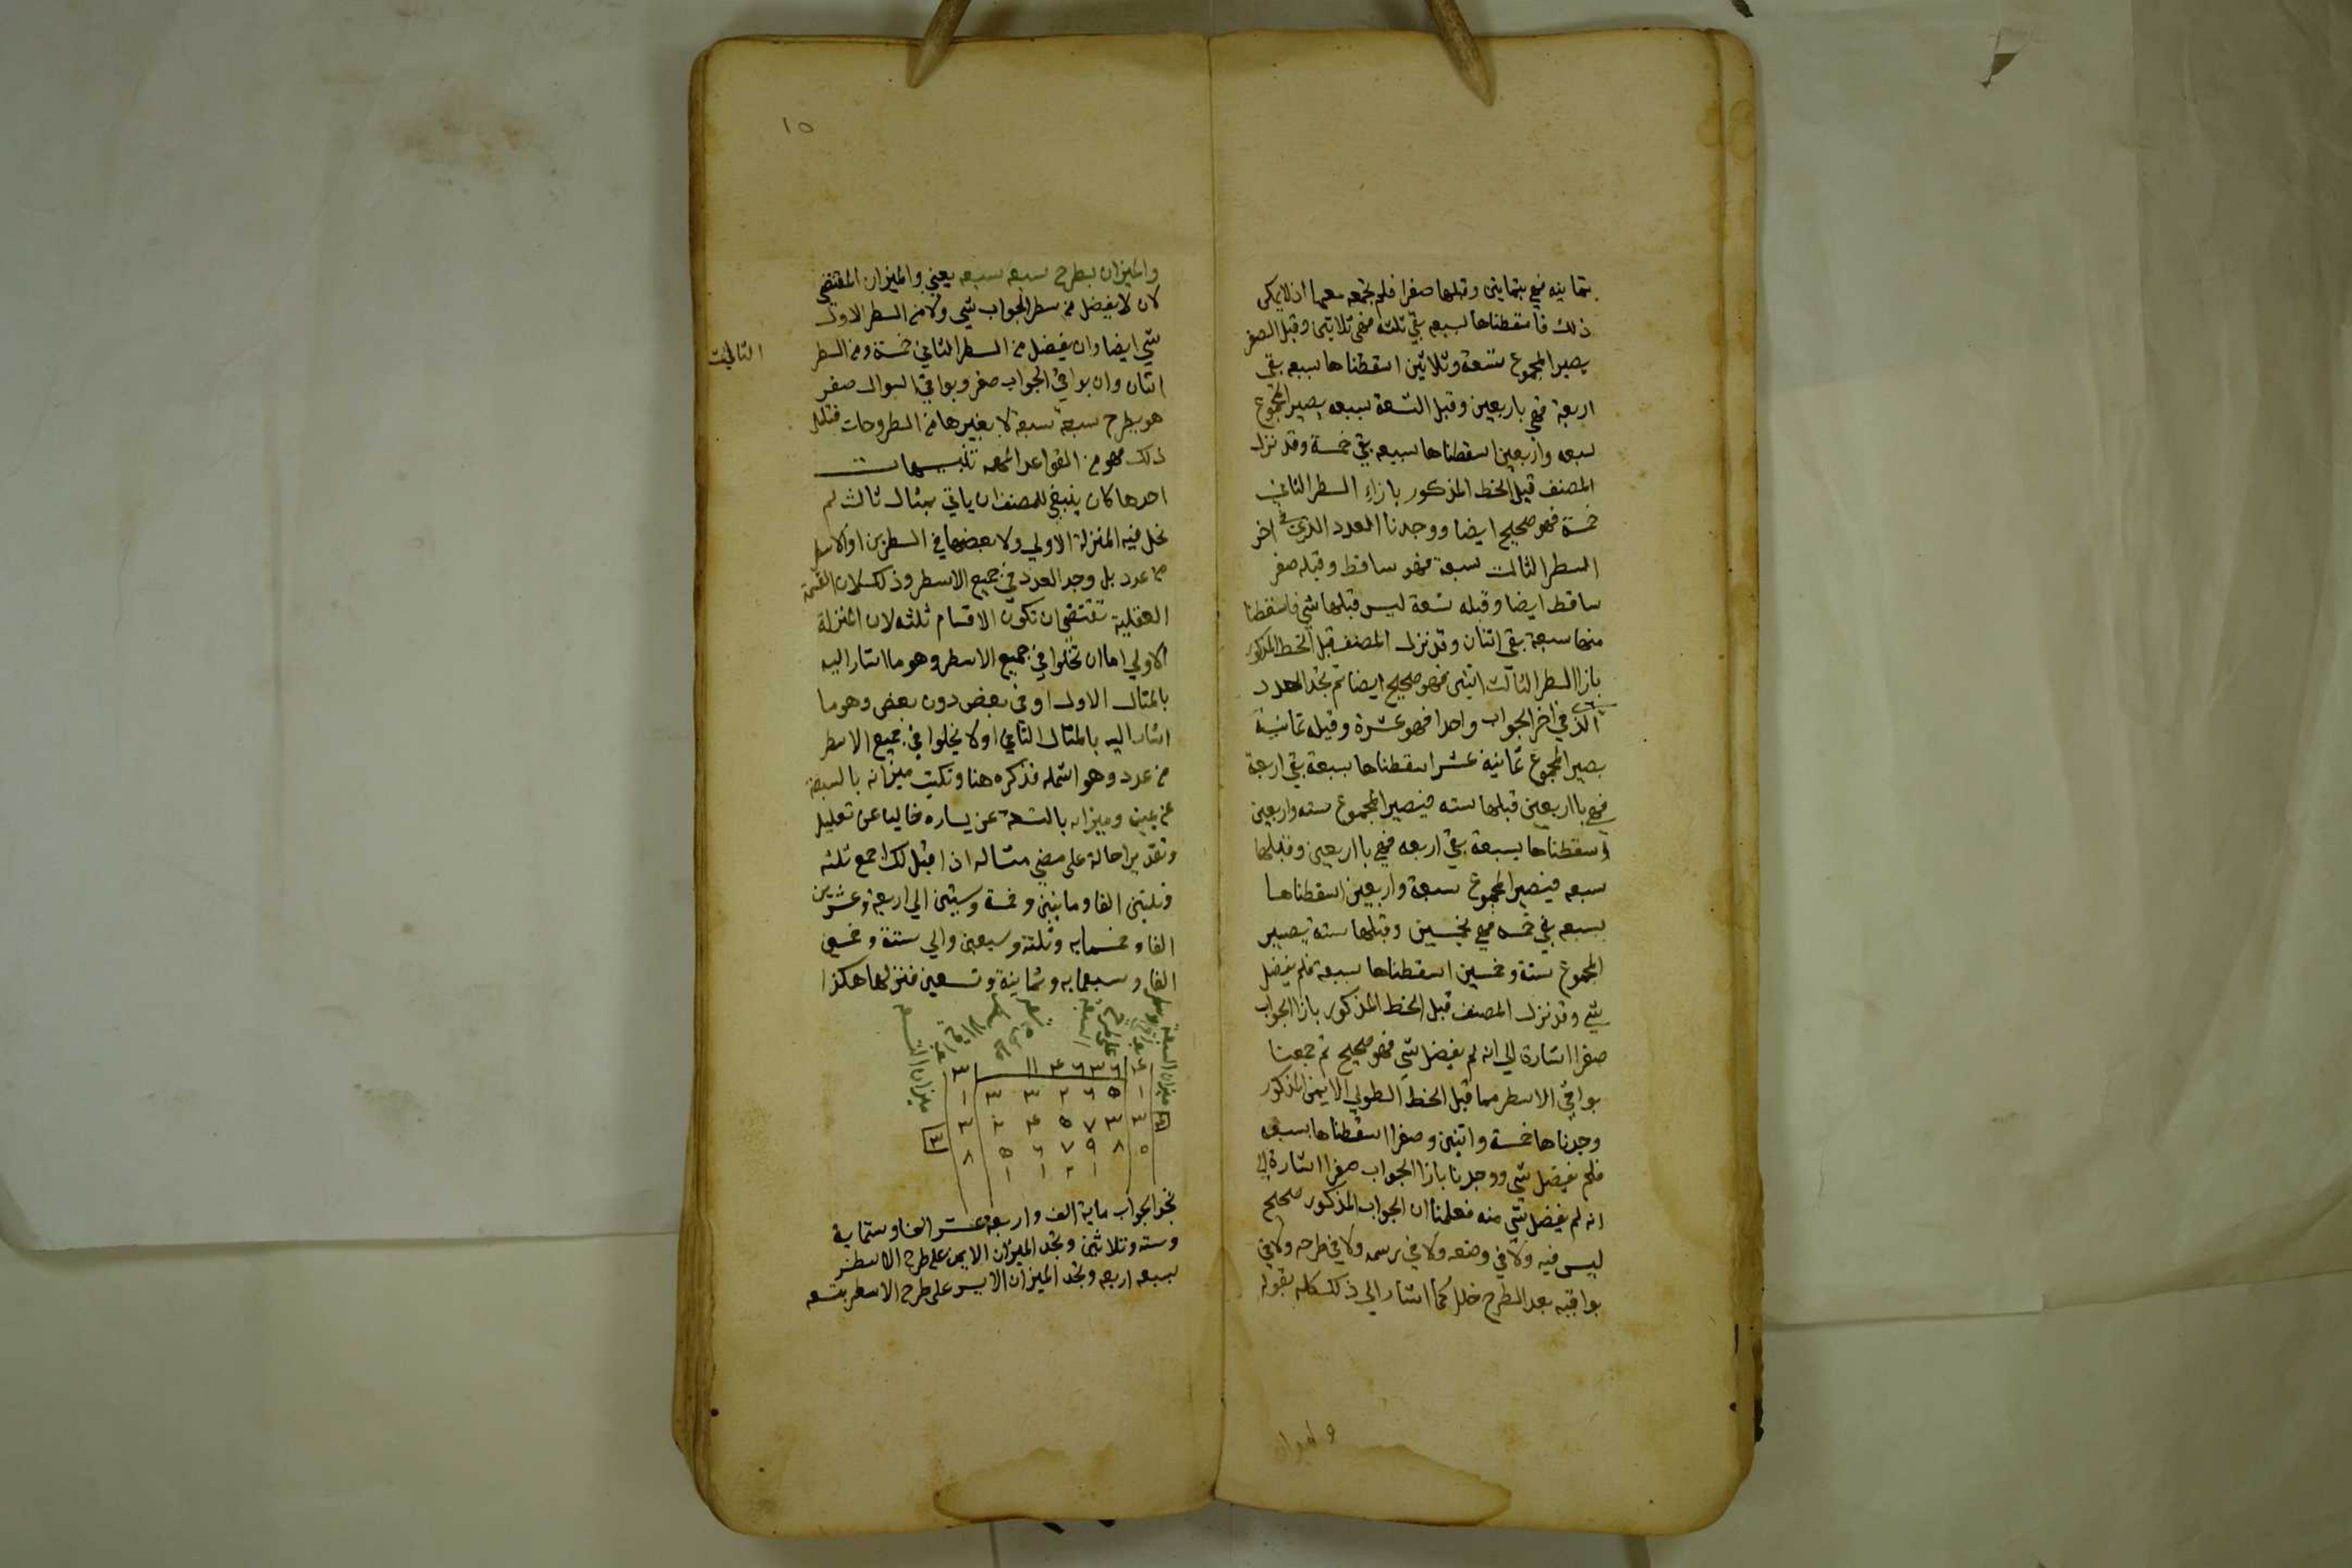 بثمانيه فهي بثمانين وقبلها صفرا فلم نجمعه معها اذ لا يمكن
ذلك فاسقطناها بسبعه بقي ثلثه فهي ثلاثين وقبل الصفر
يصير المجموع تسعة وثلاثين اسقطناها بسبعه بقي
اربعة فهي باربعين وقبل التسعة سبعه يصير المجموع
سبعه واربعين اسقطناها بسبعه بقي خمسة وقد نزل
المصنف قبل الخط المذكور بازاء السطر الثاني
خمسة فهو صحيح ايضا ووجدنا العدد الذي في اخر
السطر الثالث سبعة فهو ساقط وقبله صفر
ساقط ايضا وقبله تسعة ليس قبلها شي فاسقطنا
منها سبعة بقي اثنان وقد نزل المصنف قبل الخط المذكور
بازا السطر الثالث اثنين فهو صحيح ايضا ثم نجد العدد
الذي في اخر الجواب واحدا فهو عشرة وقبله ثمانية
يصير المجموع ثمانيه عشر اسقطناها بسبعة بقي اربعة
فهي بااربعين قبلها سته فيصير المجموع سته واربعين
اسقطناها بسبعة بقي اربعه فهي بااربعين وقبلها
سبعه فيصير المجموع سبعة واربعين اسقطناها
بسبعه بقي خمسه فهي بخمسين وقبلها سته يصير
المجموع ستة وخمسين اسقطناها بسبعة فلم يفضل
شي وقد نزل المصنف قبل الخط المذكور بازا الجواب
صفرا اشارة الي انه لم يفضل شي فهو صحيح ثم جمعنا
بواقي الاسطر مما قبل الخط الطولي الايمن المذكور
وجدناها خمسة واثنين وصفرا اسقطناها بسبعه
فلم يفضل شي ووجدنا بازا الجواب صفرا اشارة الي
انه لم يفضل شي منه فعلمنا ان الجواب المذكور صحيح
ليس فيه ولا في وضعه ولا في رسمه ولا في طرحه ولا في
بواقيه بعد الطرح خلل كما اشار الي ذلك كله بقوله
والميزان
١٥
والميزان بطرح سبعه سبعه يعني والميزان المقتضي
لان لا يفضل من سطر الجواب شي ولا من السطر الاول
شي ايضا وان يفضل من السطر الثاني خمسة ومن السطر
الثالث
اثنان وان بواقي الجواب صفر وبواقي السوال صفر
هو بطرح سبعة سبعة لا بغيرها من الطروحات
ذلك فهو من القواعد المهمه تنبيهات
احدها كان ينبغي للمصنف ان ياتي بمثال ثالث لم
تخل فيه المنزلة الاولي ولا بعضها في السطرين او الاسطر
من عدد بل وجد العدد في جميع الاسطر وذلك لان القسمة
العقلية تقتضي ان تكون الاقسام ثلثه لان المنزلة
الاولي اما ان تخلوا في جميع الاسطر وهو ما اشار اليه
بالمثال الاول او في بعض دون بعض وهو ما
اشار اليه بالمثال الثاني او لا يخلوا في جميع الاسطر
من عدد وهو اشمله فذكره هنا ونكتب ميزانه بالسبعة
عن يمين وميزانه بالتسعة عن يساره خاليا عن تعليل
وتقدير احالة على مضي مثاله اذا قيل لك اجمع ثلثه
وثلثين الفا وماىتين وخمسة وستين الي اربعة وعشرين
الفا وخمسمايه وثلثة وسبعين والي ستة وخمسين
الفا وسبعمايه وثمانية وتسعين فنزلها هكذا
ميزان السبعة
ميزان التسعه
٤ ٦ ٣ ٦ ٤ ١١ ٣
١ ٥ ٦ ٢ ٣ ٣ ١
٤ ٣ ٣ ٧ ٥ ٤ ٢ ٣ ٣
٥ ٨ ٩ ٧ ٦ ٥ ٨
١ ٢ ١ ١
نجد الجواب ماية الف واربعة عشر الفا وستماية
وسته وثلاثين ونجد الميزان الايمن على طرح الاسطر
بسبعه اربعه ونجد الميزان الايسر على طرح الاسطر بتسعه